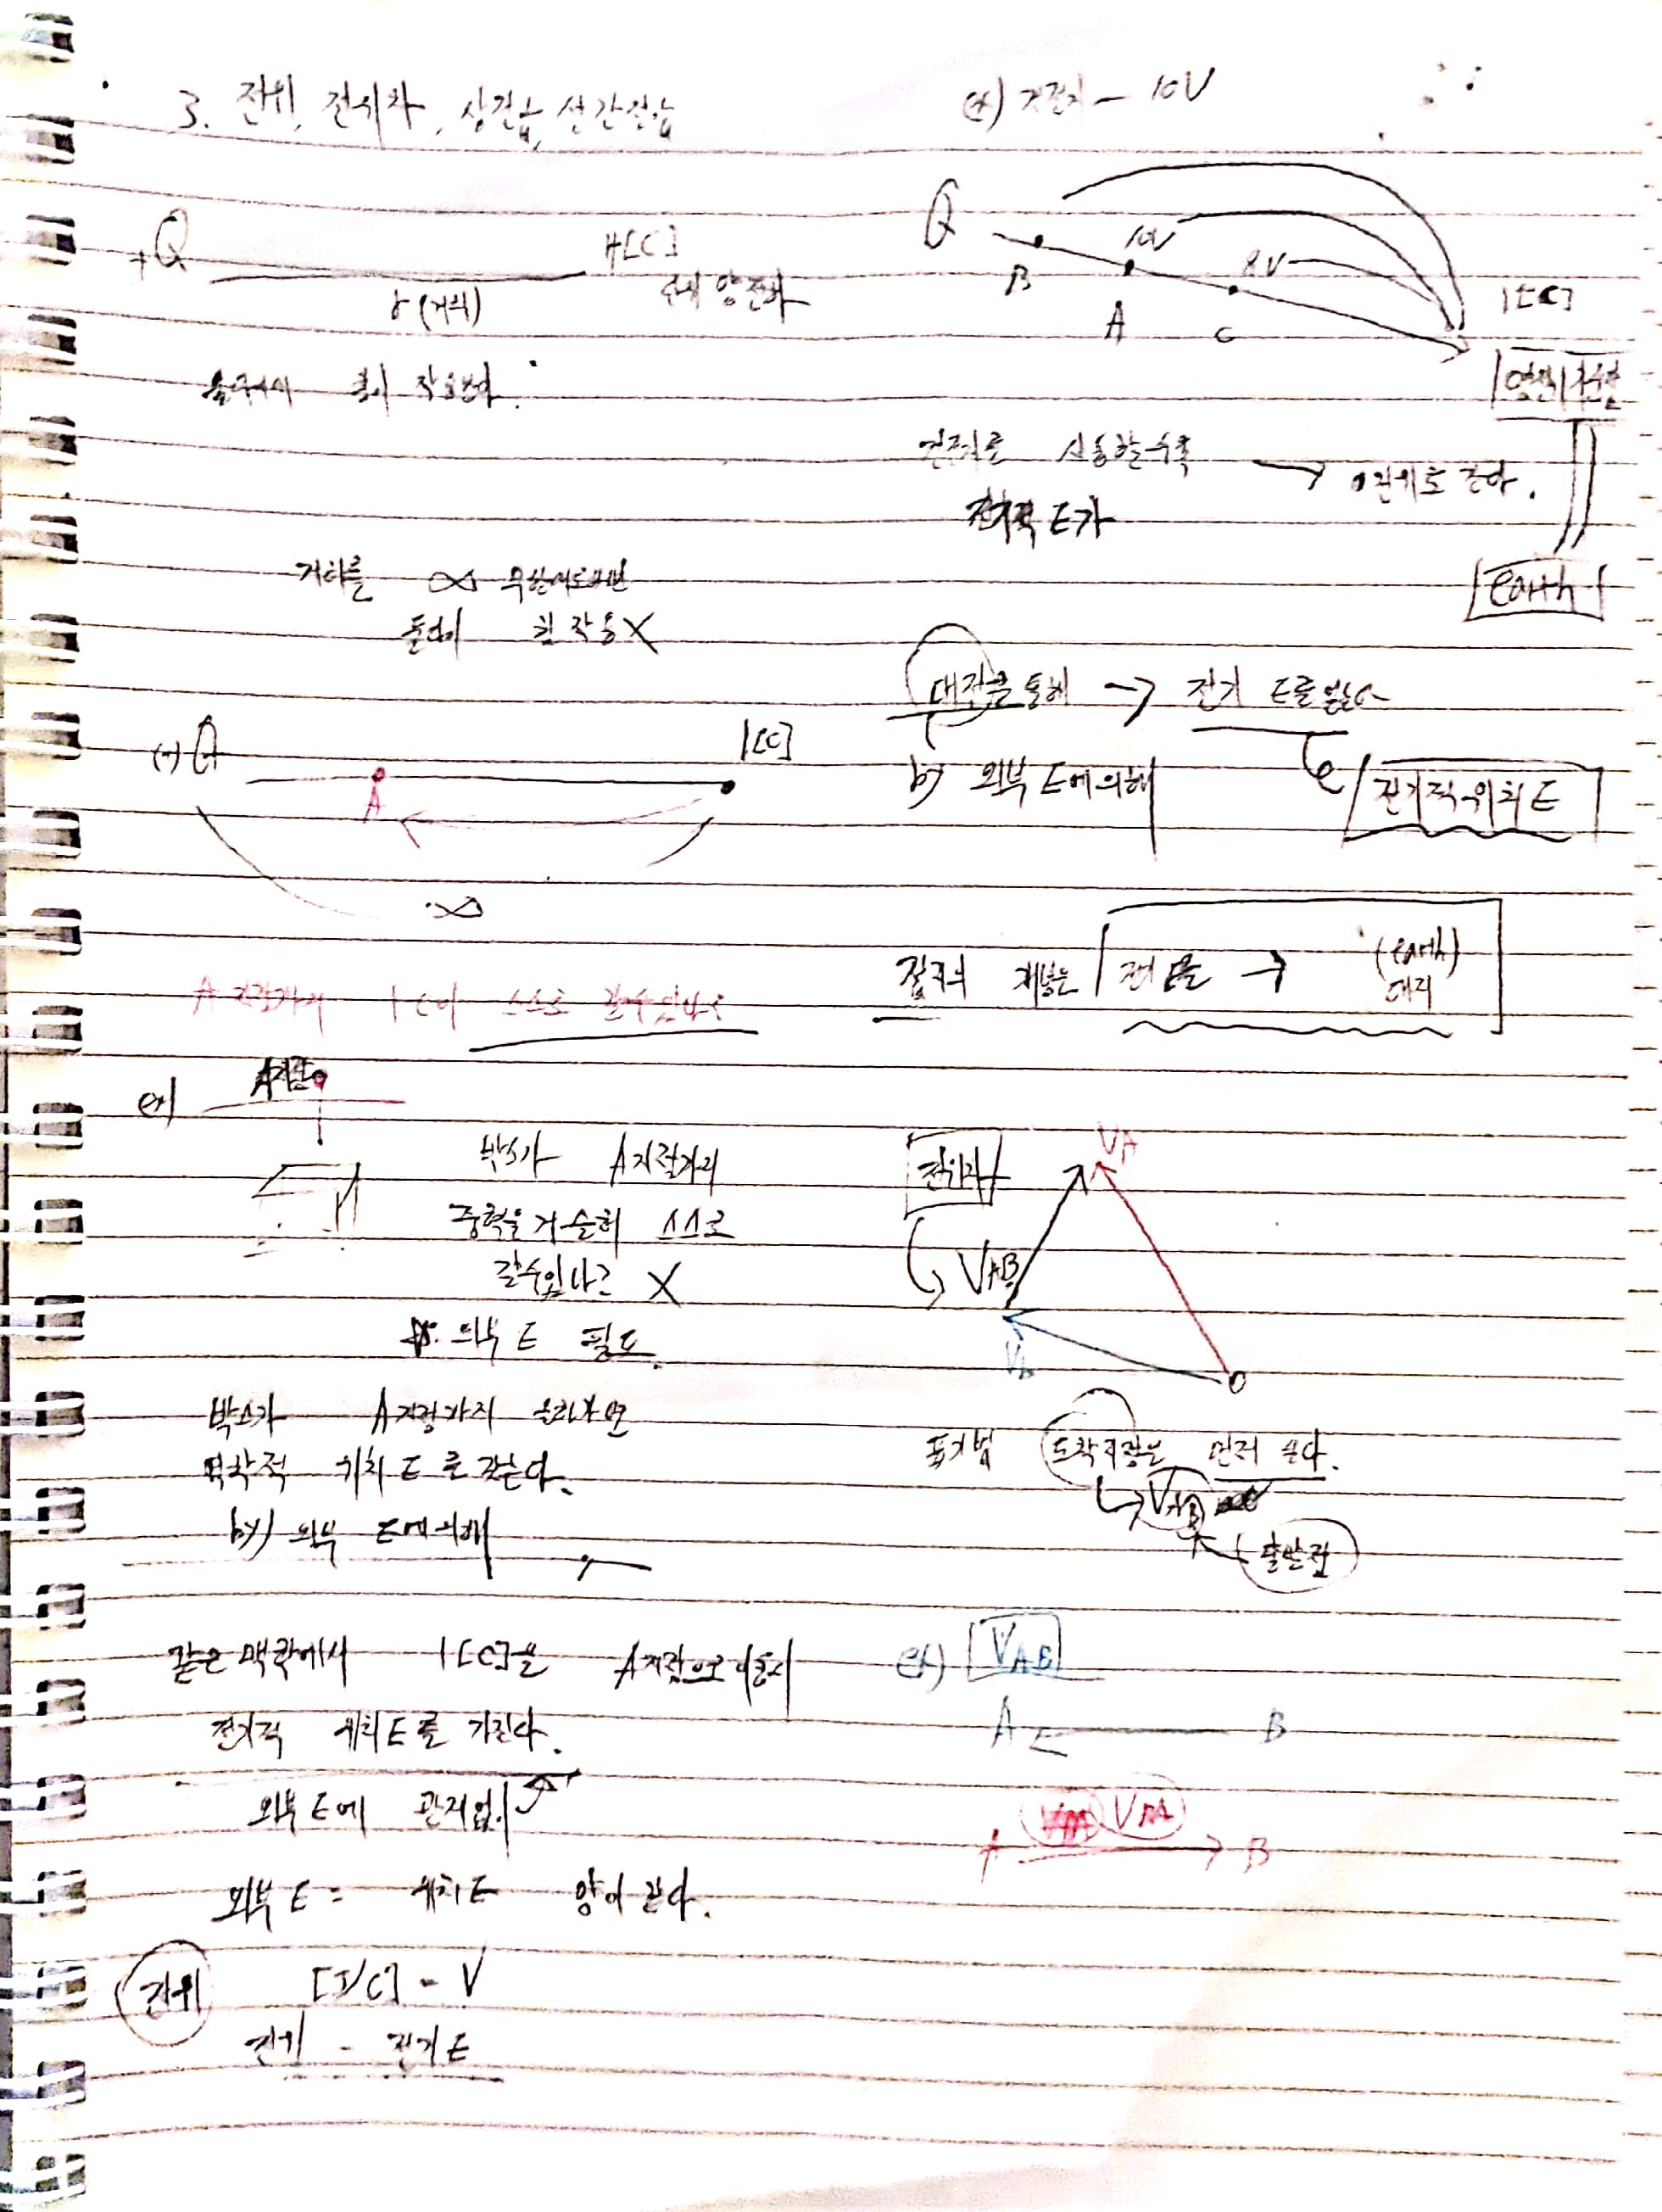 3. 전위, 전위차, 상전압, 선간전압
+Q
+1[C]
r (거리)
단위 양전하
힘이 작용한다.
거리를 ∞ 무한대로하면
둘다이 힘 작용 X
(+) Q
1[C]
A
∞
A 지점까지 1C이 스스로 갈수있나?
ex) A지점
박스가 A지점까지
중력을 거슬러 스스로
갈수있나? X
외부 E 필요.
박스가 A지점까지 올라가면
역학적 위치 E를 갖는다.
by) 외부 E에의해
같은 맥락에서 1[C]을 A지점으로 이동시
전기적 위치E를 가진다.
외부 E에
외부 E = 위치E 양이 같다.
전위 [J/C] = V
전기 - 전기 E
ex) 건전지 - 10V
Q
B
10V
A
8V
C
1[C]
영전위지점
earth
이동할수록 → 0전위로 간다.
전기적 E가
대전을 통해 → 전기 E를 받는다
by 외부 E에의해
전기적 위치 E
접지의 개념은 전하를 → (earth)
대지
전위차
VA
VAB
Vb
O
표기법 도착지점은 먼저 쓴다.
VAB
출발점
ex) VAB
A B
VBA
A B